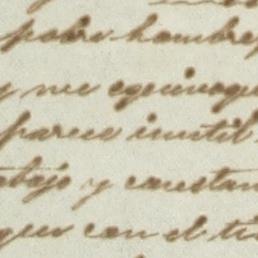 pobre hombre
y me equivoqu
parece inutil
abajo y constan
que con el ti